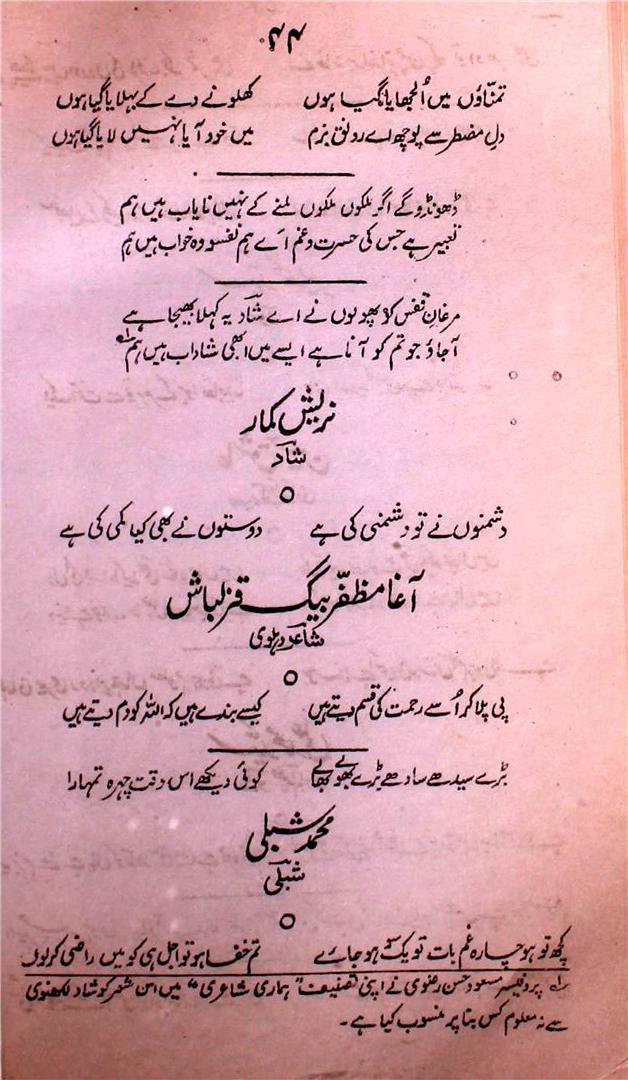 ۴۴
تمنّاؤں میں اُلجھایا گیا ہوں کھلونے دے کے بہلایا گیا ہوں
دلِ مضطر سے پوچھ اے رونقِ بزم میں خود آیا نہیں لایا گیا ہوں
ڈھونڈو گے اگر ملکوں ملکوں ملنے کے نہیں نایاب ہیں ہم
تعبیر ہے جس کی حسرت و غم اے ہم نفسو وہ خواب ہیں ہم
مرغانِ قفس کو پھولوں نے اے شادؔ یہ کہلا بھیجا ہے
آجاؤ جو تم کو آنا ہے ایسے میں ابھی شاداب ہیں ہم ؎۱
نریش کمار
شادؔ
دشمنوں نے تو دشمنی کی ہے دوستوں نے بھی کیا کمی کی ہے
آغا مظفّر بیگ قزلباش
شاعرؔ دہلوی
پی پلا کر اُسے رحمت کی قسم دیتے ہیں کیسے بندے ہیں کہ اللہ کو دم دیتے ہیں
بڑے سیدھے سادھے بڑے بھولے بھالے کوئی دیکھے اس وقت چہرہ تمہارا
محمد شبلی
شبلیؔ
کچھ تو ہو چارۂ غم بات تو یک سو ہو جائے تم خفا ہو تو اجل ہی کو میں راضی کر لوں
؎۱ پروفیسر مسعود حسن رضوی نے اپنی تصنیف "ہماری شاعری" میں اس شعر کو شاد لکھنوی
سے نہ معلوم کس بنا پر منسوب کیا ہے۔